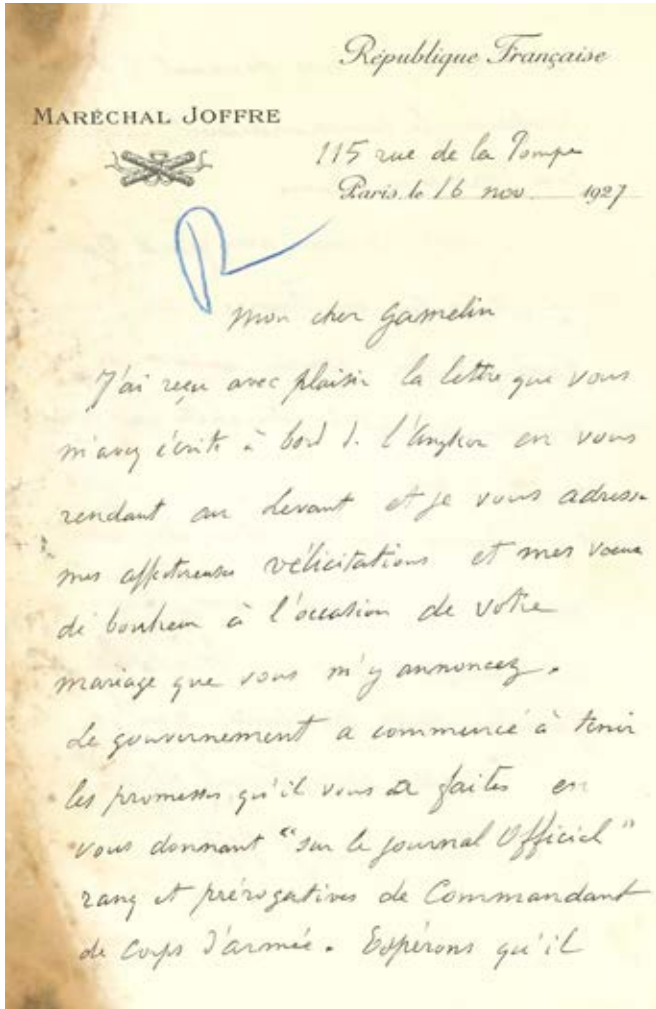 République Française
MARÉCHAL JOFFRE
115 rue de la Pompe
Paris, le 16 nov. 1927
Mon cher Gamelin
J'ai reçu avec plaisir la lettre que vous
m'avez écrite à bord de l'Angkor en vous
rendant au Levant et je vous adresse
mes affectueuses félicitations et mes vœux
de bonheur à l'occasion de votre
mariage que vous m'y annoncez.
Le gouvernement a commencé à tenir
les promesses qu'il vous a faites en
vous donnant "sur le journal Officiel"
rang et prérogatives de Commandant
de Corps d'armée. Espérons qu'il